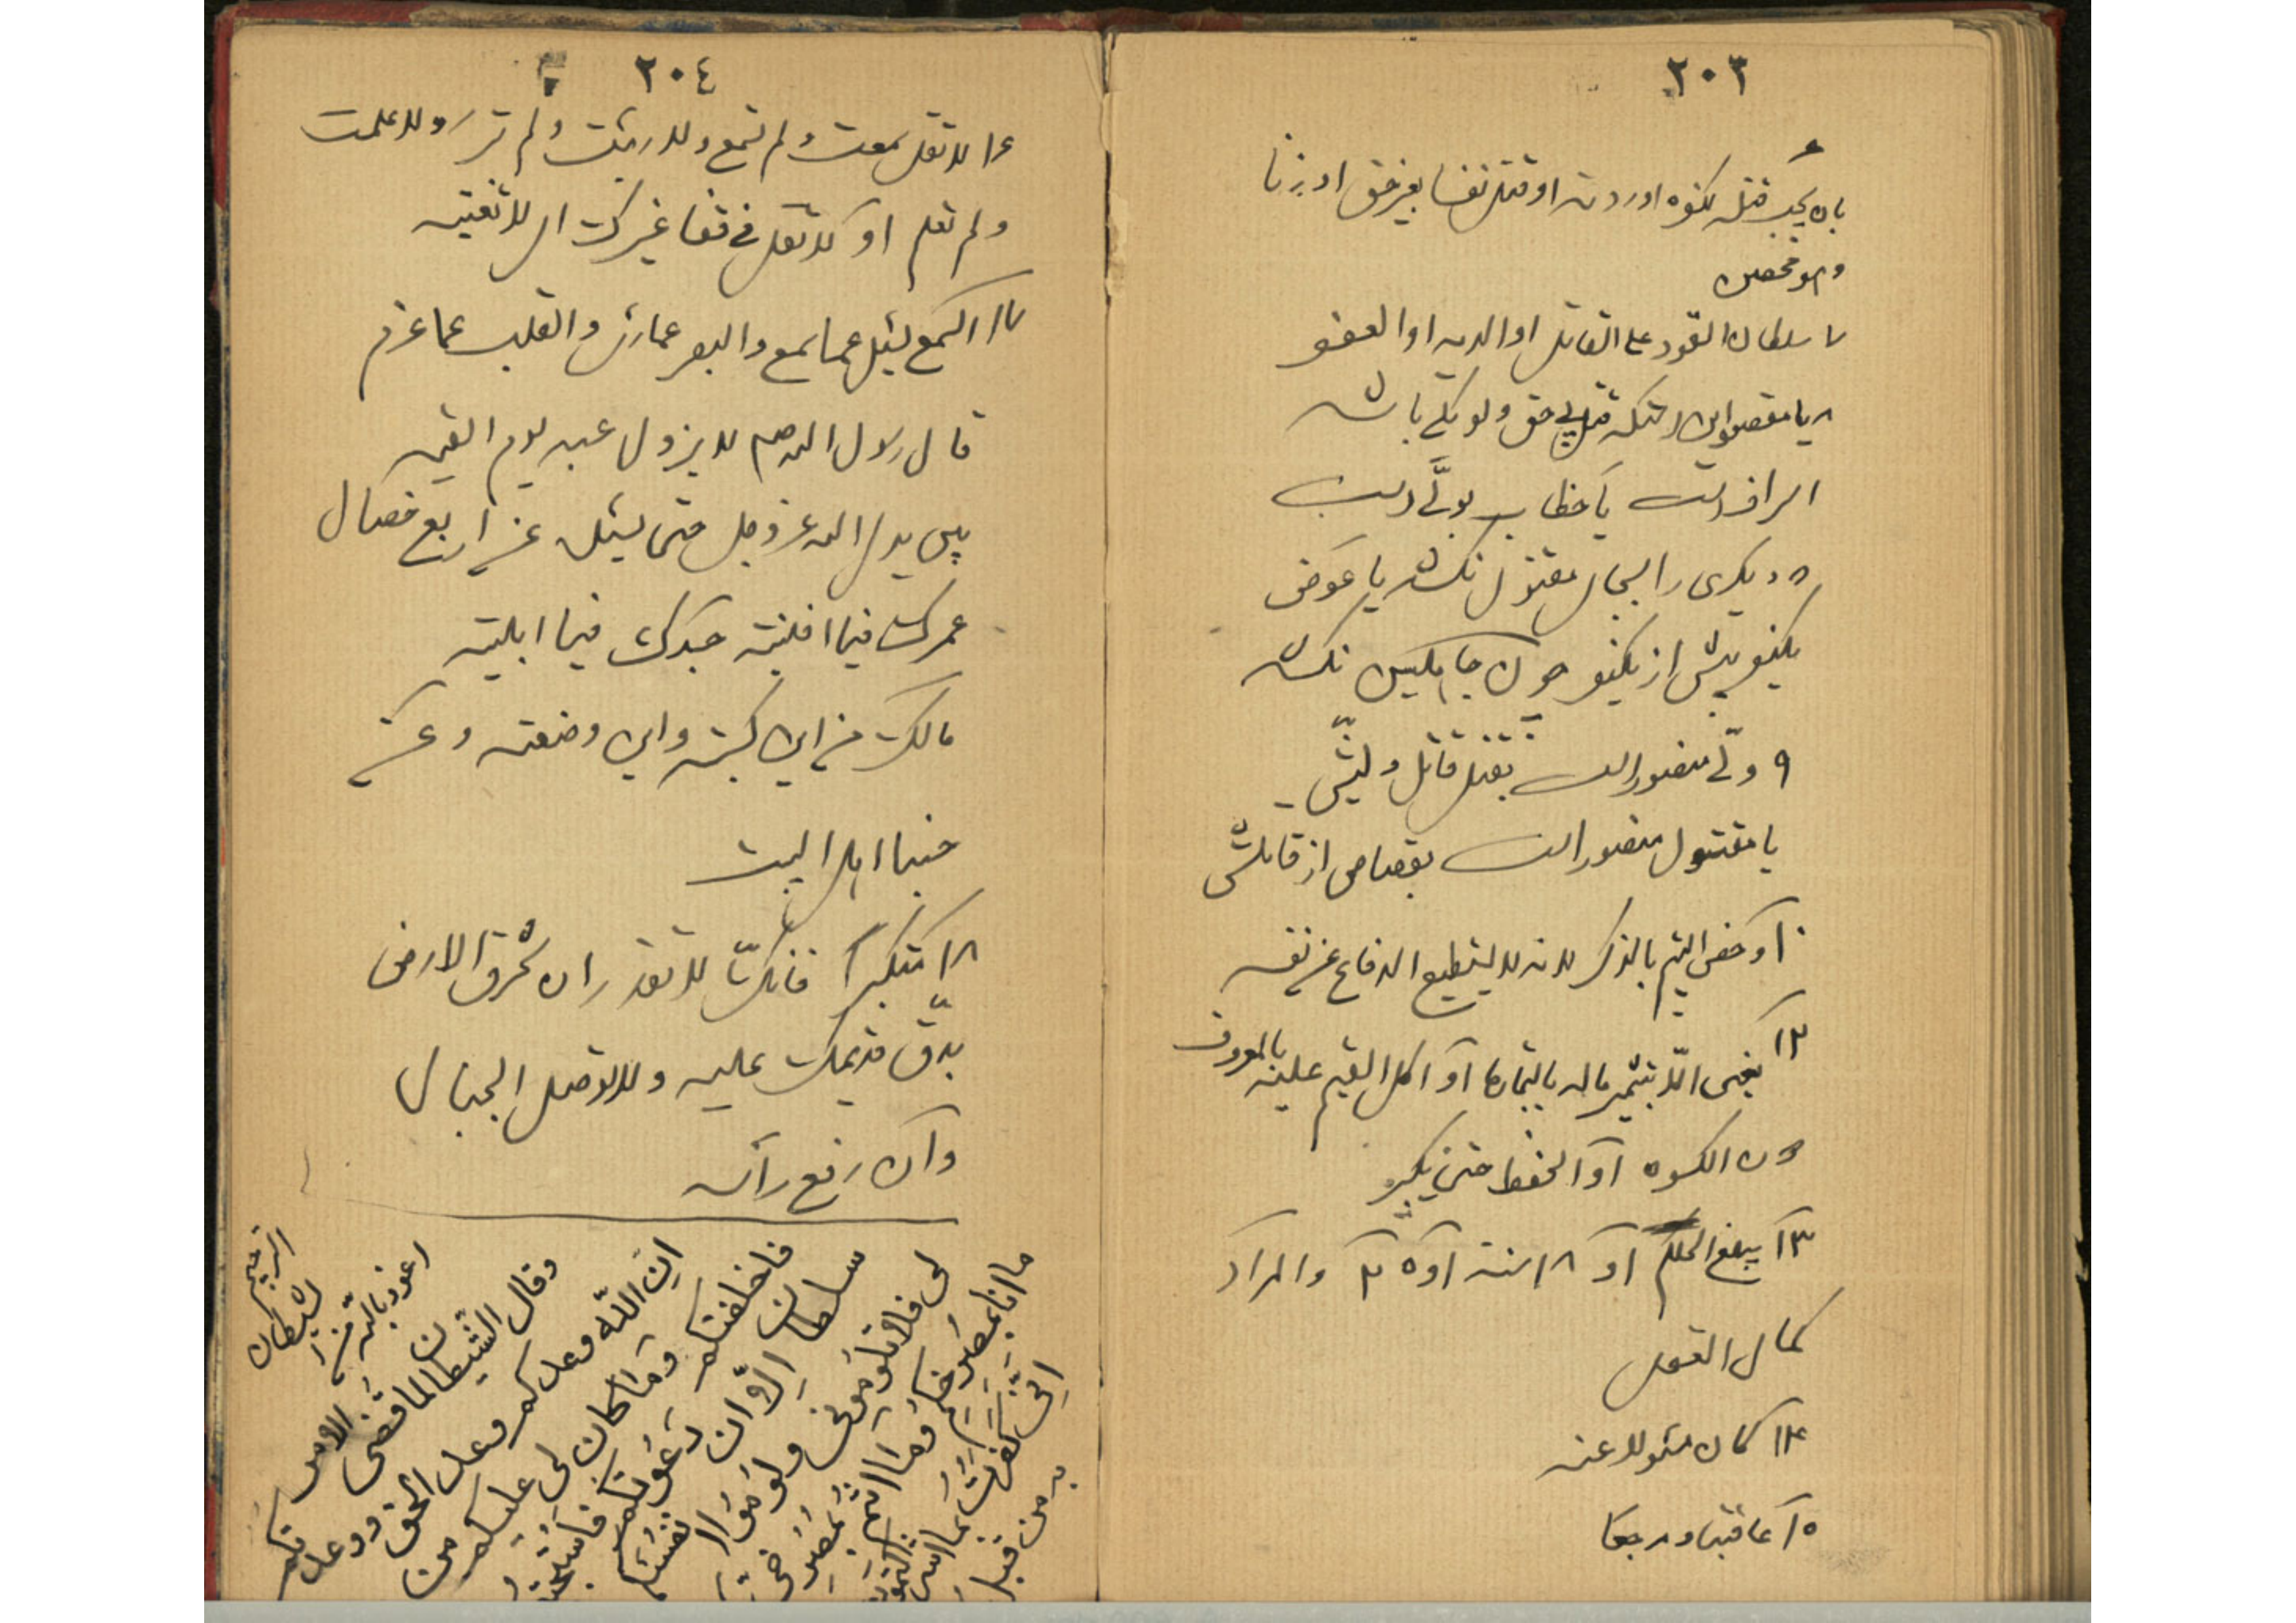 ٢٠٣
٦
بان یجب قتله لکفره او ردته او قتل نفسا بغیر حق او زنا
وهو محصن
٧ سلطان القود علی القاتل او الدیه او العفو
٨ یا مقصود این قتل بی حق ولو یکی باشد
اسراف است یا خطاب بولّی است
٥ دیگری را بجای مقتول نکشد یا عوض
یکنفر بیش از یکنفر چون جاهلیین نکشد
٩ ولّی منصور است بقتل قاتل ولیّش
یا مقتول منصور است بقصاص از قاتلش
١٠ و خص الیتیم بالذکر لانه لا یستطیع الدفاع عن نفسه
١٢ یعنی الّا بتثمیر ماله بالتجارة او اکل القیم علیه بالمعروف
دون الکسوه او الحفظ حتی یکبر
١٣ یبلغ الحلم او ١٨ سنة او ٥ ٣ والمراد
کمال العقل
١٤ کان مسئولا عنه
١٥ عاقبتا و مرجعا
٢٠٤
١٦ لا تقل سمعت و لم تسمع و لا رئیت و لم تر و لا علمت
و لم تعلم او لا تقل فی قفا غیرک ای لا تغتبه
١٧ السمع یسئل عما سمع و البصر عما رای و القلب عما عزم
قال رسول الله صم لا یزول عبد یوم القیمه
بین یدی الله عز و جل حتی یسئل عن اربع خصال
عمرک فیما افنیته جسدک فیما ابلیته
مالک من این کسبته و این وضعته و عن
حبنا اهل البیت
١٨ متکبرا فانک لا تقدر ان تخرق الارض
بدقّ قدمیک علیه و لا توصل الجبال
وان رفع راسه
اعوذ بالله من الشیطان الرجیم
وقال الشّیطان لما قضی الامر
انّ اللّه وعدکم وعد الحق ووعدتکم
فاخلفتکم وما کان لی علیکم من
سلطان الّا ان دعوتکم فاستجبتم
لی فلا تلومونی ولوموا انفسکم
ما انا بمصرخکم وما انتم بمصرخیّ
انی کفرت بما اشرکتمون
من قبل